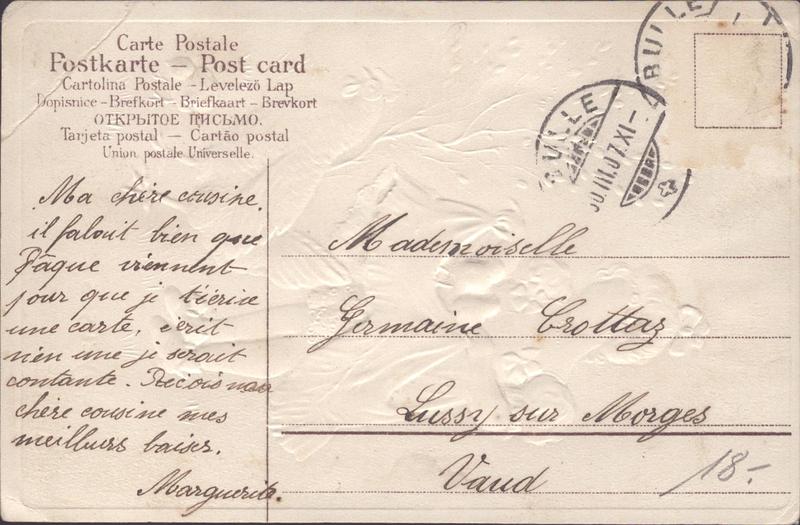 Carte Postale
Postkarte — Post card
Cartolina Postale - Levelező Lap
Dopisnice - Brefkort - Briefkaart - Brevkort
ОТКРЫТОЕ ПИСЬМО.
Tarjeta postal — Cartão postal
Union postale Universelle.
BULLE
BULLE
30.III.07.XI-
Ma chère cousine,
il falait bien que
Pâque viennent
pour que je t'écrive
une carte, écrit
m'en une je serait
contante. Recois ma
chère cousine mes
meillurs baiser.
Marguerite.
Mademoiselle
Germaine Crottaz
Lussy sur Morges
Vaud
18.-